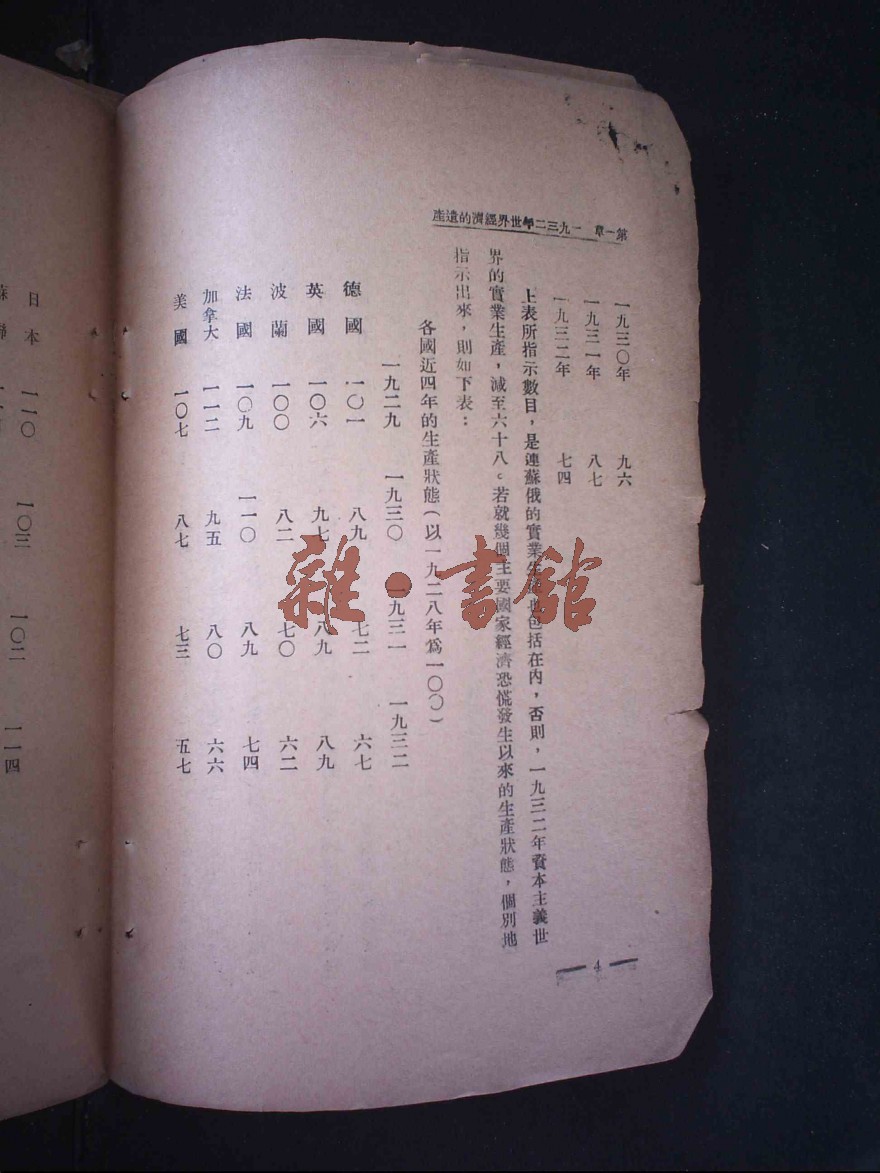 第一章　一九三二年世界經濟的遺產
一九三〇年　九六
一九三一年　八七
一九三二年　七四
上表所指示數目，是連蘇俄的實業生產也包括在內，否則，一九三二年資本主義世
界的實業生產，減至六十八。若就幾個主要國家經濟恐慌發生以來的生產狀態，個別地
指示出來，則如下表：
各國近四年的生產狀態（以一九二八年爲一〇〇）
一九二九　一九三〇　一九三一　一九三二
德國　一〇一　八九　七二　六七
英國　一〇六　九七　八九　八九
波蘭　一〇〇　八二　七〇　六二
法國　一〇九　一一〇　八九　七四
加拿大　一一二　九五　八〇　六六
美國　一〇七　八七　七三　五七
4
日本　一一〇　一〇三　一〇二　一一四
蘇聯
雜·書館